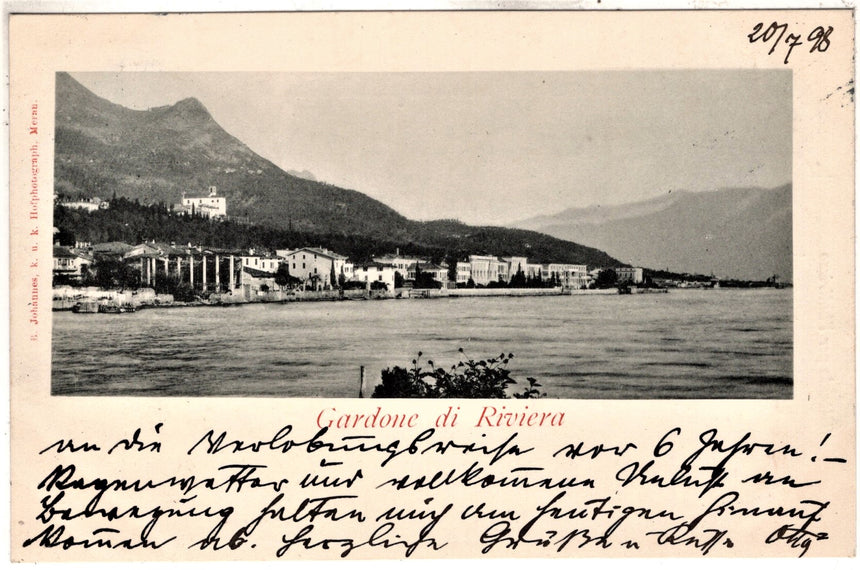 20/7 98
B. Johannes, k. u. k. Hofphotograph, Meran.
Gardone di Riviera
an die Verlobungsreise vor 6 Jahren!–
Regenwetter und vollkommene Unlust an
Bewegung halten mich am heutigen Hinauf
kommen ab. Herzliche Grüße u Küsse